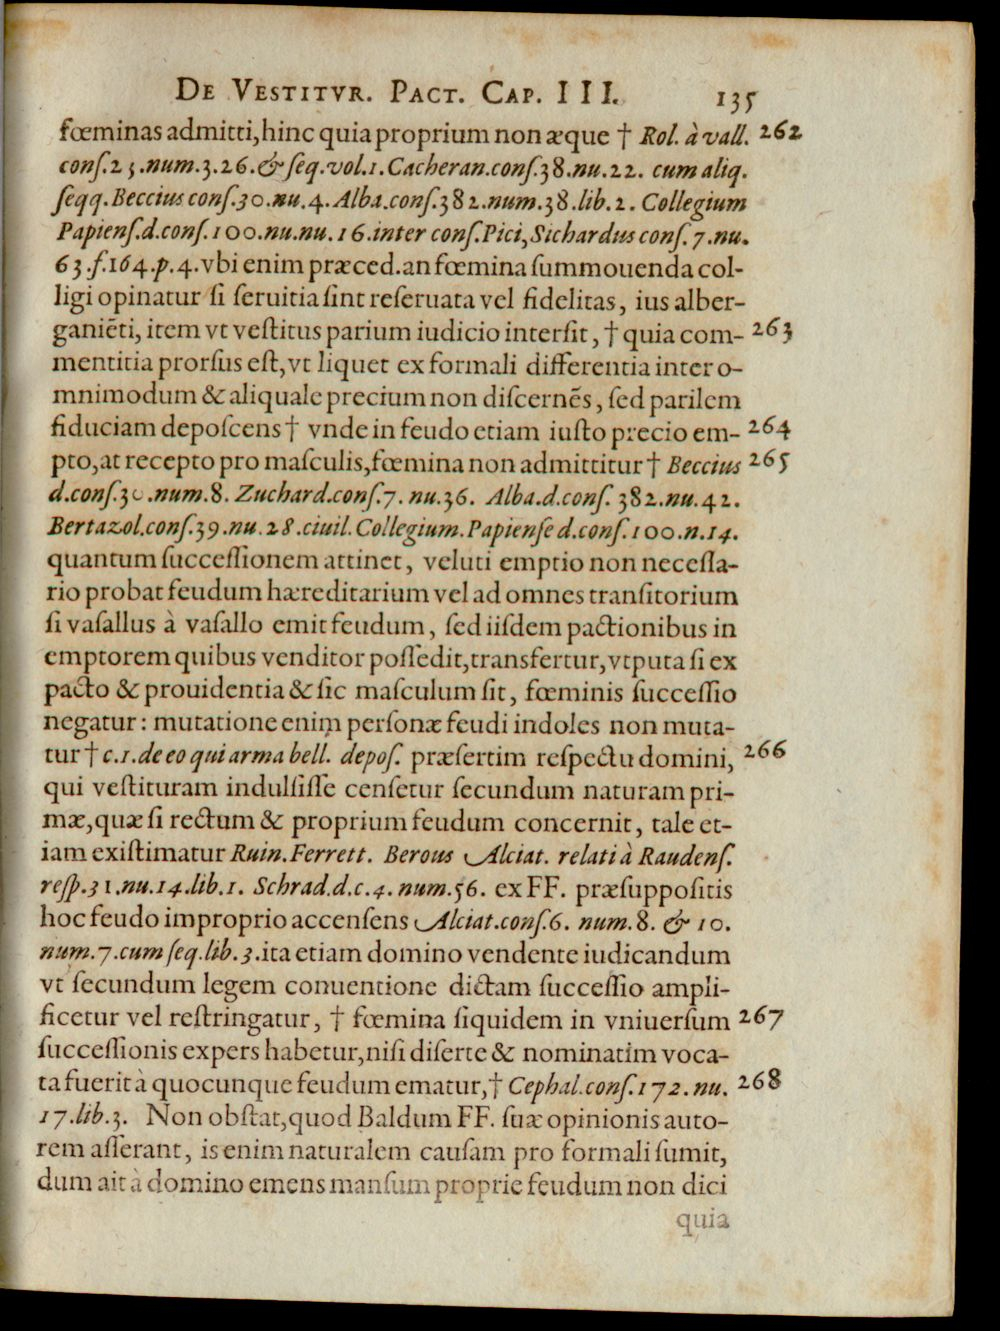 De Vestitvr. Pact. Cap. III. 135
fœminas admitti, hinc quia proprium non æque † Rol. à vall. 262
conſ. 25. num. 3. 26. & ſeq. vol. 1. Cacheran. conſ. 38. nu. 22. cum aliq.
ſeqq. Beccius conſ. 30. nu. 4. Alba. conſ. 382. num. 38. lib. 2. Collegium
Papienſ. d. conſ. 100. nu. nu. 16. inter conſ. Pici, Sichardus conſ. 7. nu.
63. f. 164. p. 4. vbi enim præced. an fœmina ſummouenda col-
ligi opinatur ſi ſeruitia ſint reſeruata vel fidelitas, ius alber-
ganiēti, item vt veſtitus parium iudicio interſit, † quia com- 263
mentitia prorſus eſt, vt liquet ex formali differentia inter o-
mnimodum & aliquale precium non diſcernēs, ſed parilem
fiduciam depoſcens † vnde in feudo etiam iuſto precio em- 264
pto, at recepto pro maſculis, fœmina non admittitur † Beccius 265
d. conſ. 30. num. 8. Zuchard. conſ. 7. nu. 36. Alba. d. conſ. 382. nu. 42.
Bertazol. conſ. 39. nu. 28. ciuil. Collegium. Papienſe d. conſ. 100. n. 14.
quantum ſucceſſionem attinet, veluti emptio non neceſſa-
rio probat feudum hæreditarium vel ad omnes tranſitorium
ſi vaſallus à vaſallo emit feudum, ſed iiſdem pactionibus in
emptorem quibus venditor poſſedit, transfertur, vtputa ſi ex
pacto & prouidentia & ſic maſculum ſit, fœminis ſucceſſio
negatur: mutatione enim perſonæ feudi indoles non muta-
tur † c. 1. de eo qui arma bell. depoſ. præſertim reſpectu domini, 266
qui veſtituram indulſiſſe cenſetur ſecundum naturam pri-
mæ, quæ ſi rectum & proprium feudum concernit, tale et-
iam exiſtimatur Ruin. Ferrett. Berous Alciat. relati à Raudenſ.
reſp. 31. nu. 14. lib. 1. Schrad. d. c. 4. num. 56. ex FF. præſuppoſitis
hoc feudo improprio accenſens Alciat. conſ. 6. num. 8. & 10.
num. 7. cum ſeq. lib. 3. ita etiam domino vendente iudicandum
vt ſecundum legem conuentione dictam ſucceſſio ampli-
ficetur vel reſtringatur, † fœmina ſiquidem in vniuerſum 267
ſucceſſionis expers habetur, niſi diſerte & nominatim voca-
ta fuerit à quocunque feudum ematur, † Cephal. conſ. 172. nu. 268
17. lib. 3. Non obſtat, quod Baldum FF. ſuæ opinionis auto-
rem aſſerant, is enim naturalem cauſam pro formali ſumit,
dum ait à domino emens manſum proprie feudum non dici
quia